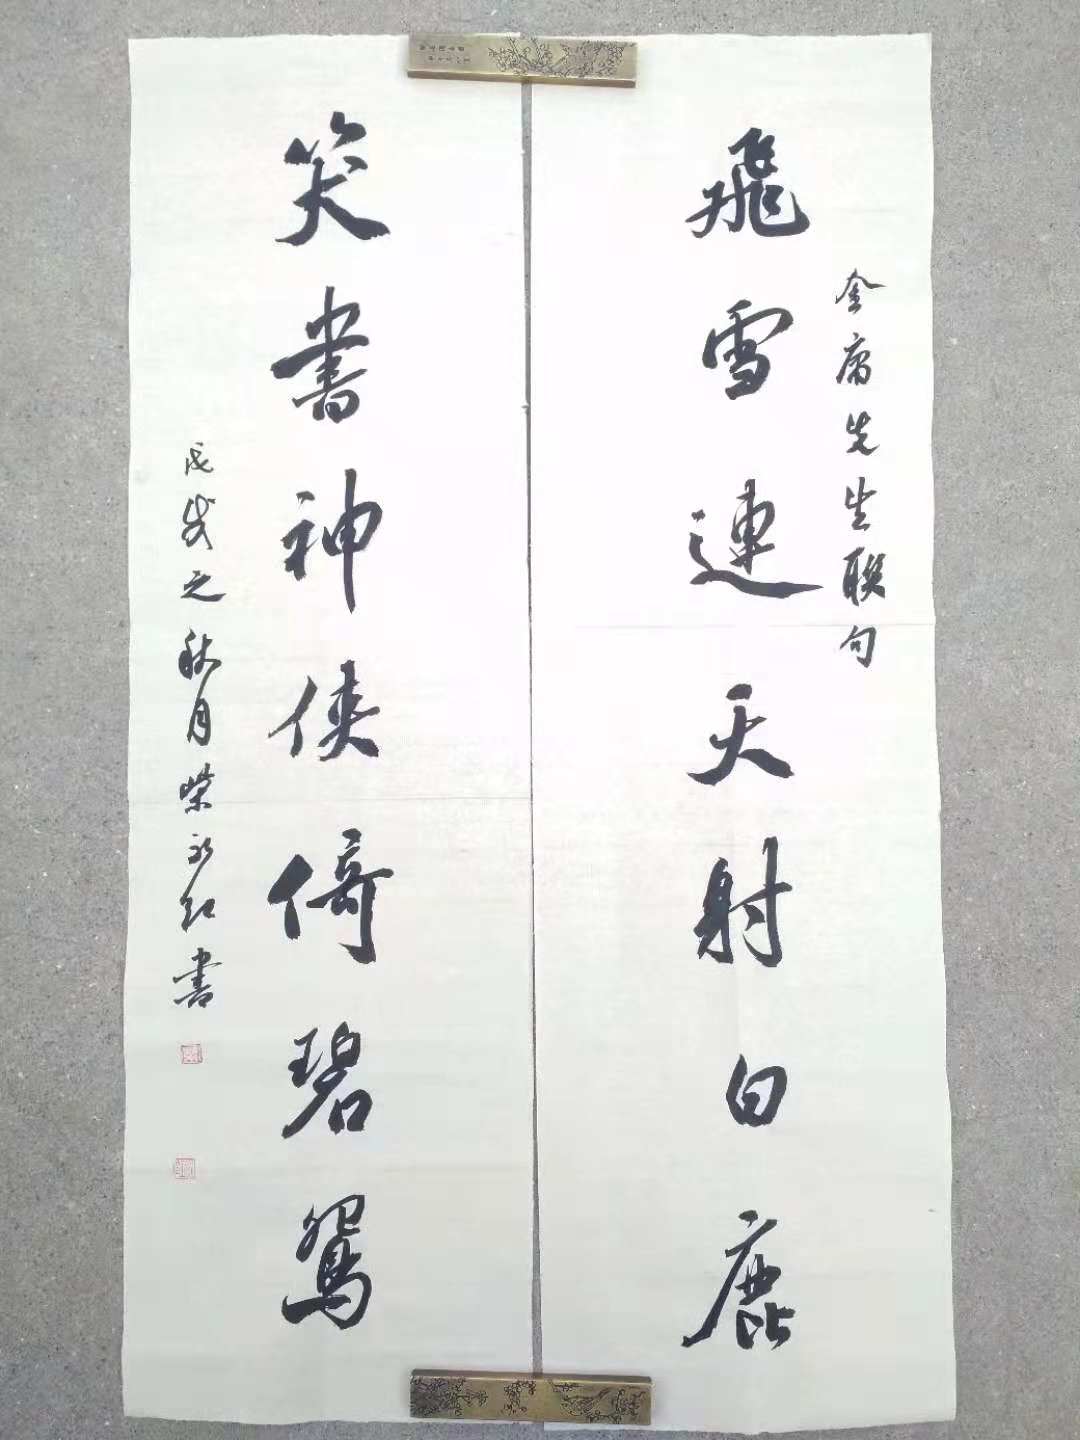 飛雪連天射白鹿
金庸先生聯句
笑書神侠倚碧鴛
戊戌之秋月柴永红書